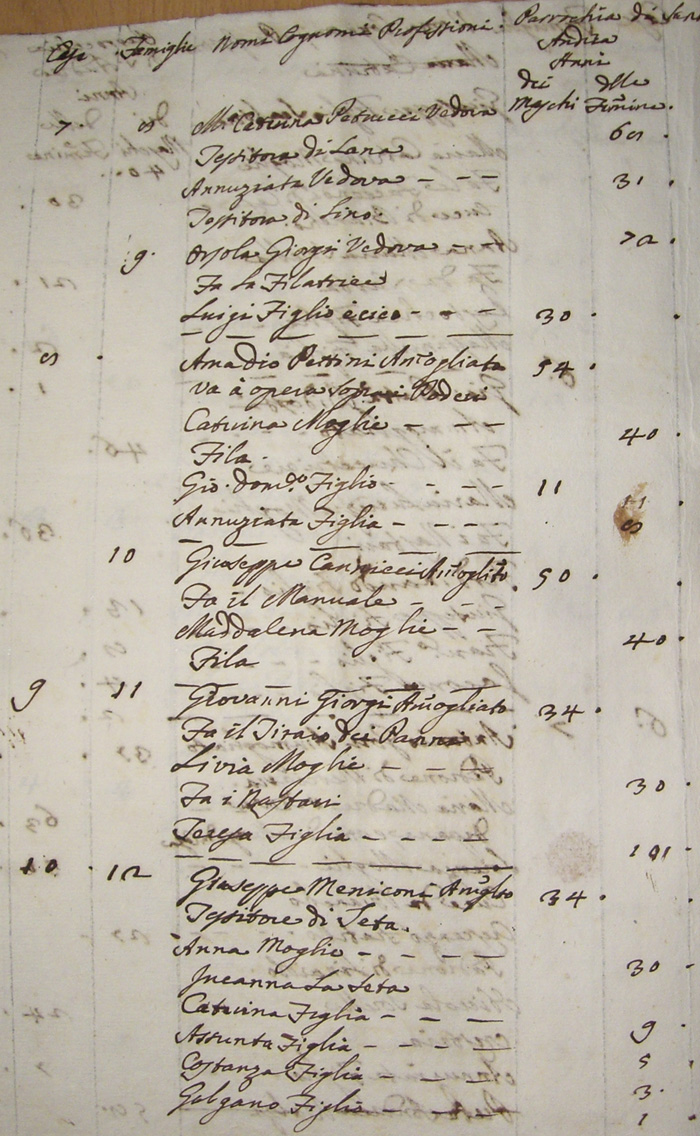 Case Famiglie Nomi Cognomi Professioni. Parrochia di San
Andrea
Anni
dei delle
Maschi Femine.
7. 8 Ma. Caterina Petrucci Vedova 68 .
Tessitora di Lana
Annuziata Vedova - - - 31 .
Tessitora di Lino.
9. Orsola Giorgi Vedova - - 72 .
Fa La Filatrice
Luigi Figlio è cieco - - - 30 .
8 . Amadio Pettini Amogliato 54 .
Va à opera sopra i Poderi
Caterina Moglie - - - 40 .
Fila .
Gio. Domco. Figlio - - - - 11
Annuziata Figlia - - - - 8
10 Giuseppe Amoglito 50 .
Fa il Manuale - - -
Maddalena Moglie - - 40 .
Fila
9 11 Giovanni Giorgi Amogliato 34 .
Fa il Tiraio dei Panni
Livia Moglie - - - 30 .
Fa i
Teresa Figlia - - - -
10 . 12 Giuseppe Meniconi Amoglto 34 .
Tessitore di Seta.
Anna Moglie - - - - 30 .
Incanna La Seta
Caterina Figlia - - - 9
Assunta Figlia - - - - 5
Costanza Figlia - - - - 3 .
Galgano Figlio - - - - 1